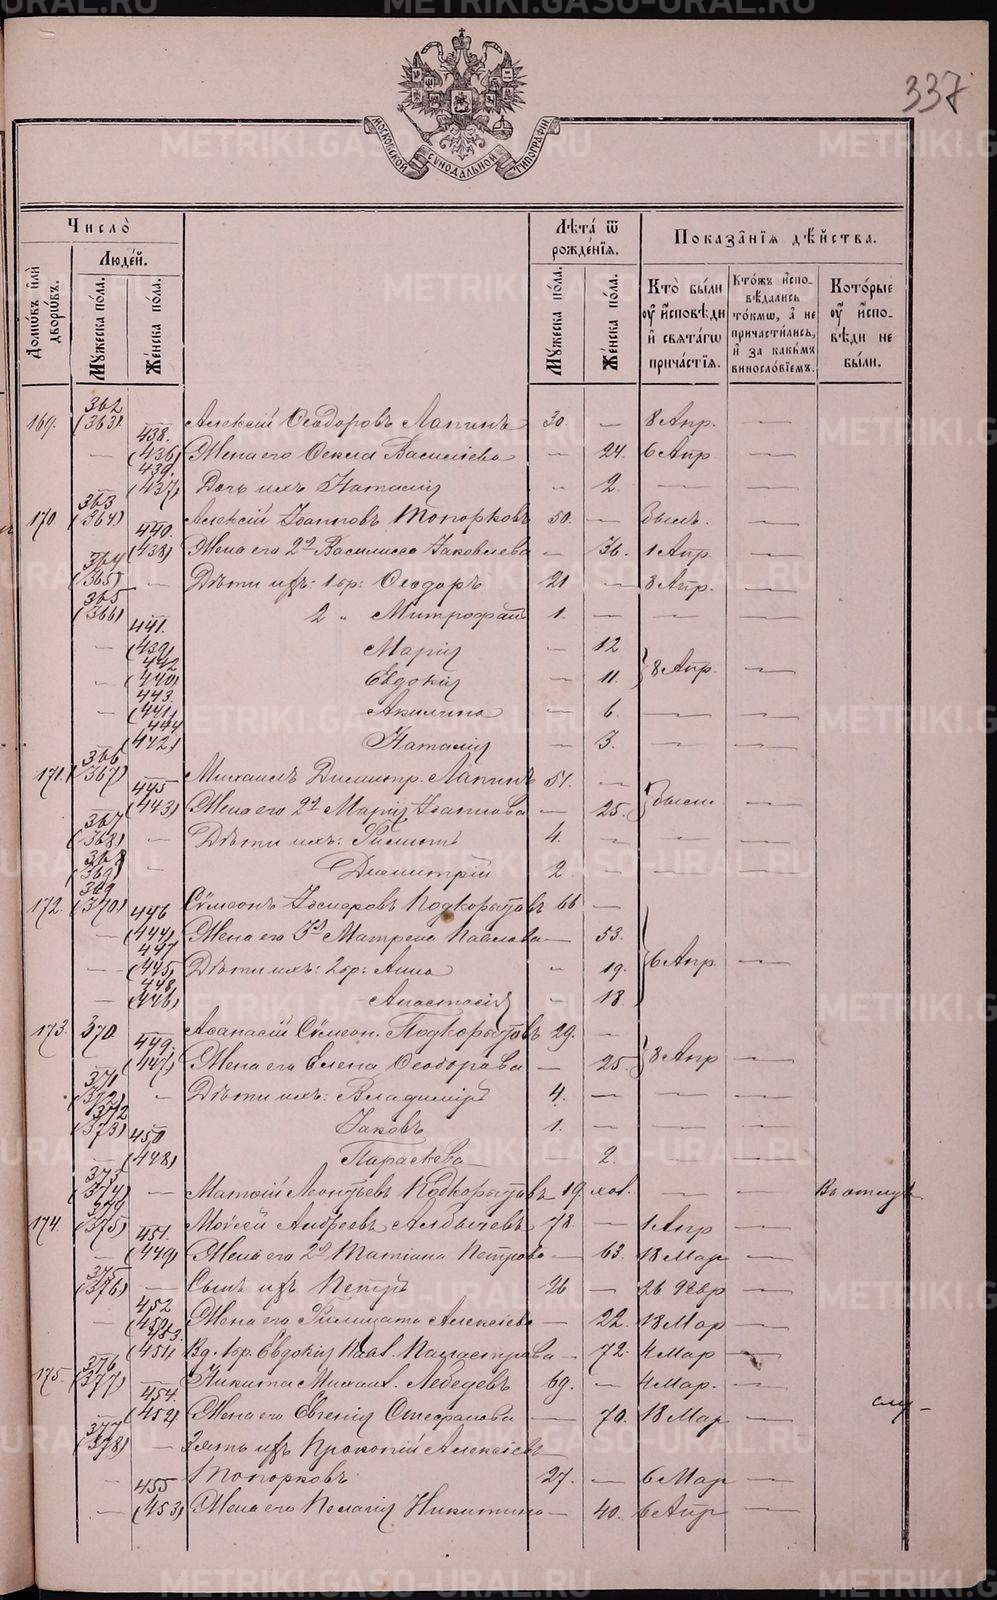 METRIKI.GASO-URAL.RU
337
МОСКОВСКОЙ СѴНОДАЛЬНОЙ ТИПОГРАФІИ
Число̀
Лѣта̀ ѿ рожде́нїѧ.
Показа̑нїѧ дѣ́йства.
Домѡ́въ и҆лѝ дворѡ́въ.
Люде́й.
Мꙋ́жеска по́ла.
Же́нска по́ла.
Мꙋ́жеска по́ла.
Же́нска по́ла.
Кто̀ бы́ли ᲂу҆ и҆сповѣ́ди и҆ свѧта́гѡ прича́стїѧ.
Кто́жъ и҆сповѣ́дались то́кмѡ, а҆ не причасти́лись, и҆ за каки́мъ винослові́емъ.
Кото́рые ᲂу҆ и҆сповѣ́ди не бы́ли.
169. 362 (363) Алексій Ѳеодоровъ Лапинъ 30. — 8 Апр. —
— 438. (436) Жена его Ѳекла Васильева — 24. 6 Апр —
439. (437) Дочь ихъ Наталія — 2. — —
170. 363 (364) Алексій Іоанновъ Топорковъ 50. — были. —
440. (438) Жена его 2я Василисса Іаковлева — 36. 1 Апр. —
364 (365) — Дѣти ихъ: 1 бр: Ѳеодоръ 21 — 8 Апр. —
365 (366) 2 „ Митрофанъ 1. — — —
— 441. (439) Марія — 12
8 Апр. —
— 442 (440) Евдокія — 11.
— 443. (441) Акилина — 6. — —
444 (442) Наталія — 3. — —
171. 366 (367) Михаилъ Димитр. Лапинъ 51. —
были —
445 (443) Жена его 2я Марія Іоаннова — 25.
367 (368) — Дѣти ихъ: Филиппъ 4. — — —
368 (369) — Димитрій 2 — — —
172. 369 (370) Сѵмеонъ Подкорытовъ 66 —
446 (444) Жена его 3я Матрена Павлова — 53.
6 Апр —
— 447 (445) Дѣти ихъ: 2 бр: Анна — 19.
— 448 (446) Анастасія — 18.
173. 370. Аѳанасій Сѵмеон. Подкорытовъ 29. —
8 Апр —
449. (447) Жена его Елена Ѳеодорова — 25.
371 (372) — Дѣти ихъ: Владиміръ 4. — — —
372 (373) Іаковъ 1. — — —
— 450 (448) Параскева — 2. — —
373 (374) — Матѳій Леонтьевъ Подкорытовъ 19. хол. — — Въ отлуч.
174. 374 (375) Моѵсей Андреевъ 72. — 1 Апр —
451. (449) Жена его 2я Татіана Петрова — 63. 18 Мар —
375 (376) — Сынъ ихъ Петръ 26 — 26 Февр —
— 452 (450) Жена его Филицата Алексіева — 22. 18 Мар —
453. (451) Вд. 1 бр. Евдокія Пав. — 72. 4 Мар —
175. 376 (377) Никита Михаил. Лебедевъ 69. — 4 Мар. —
— 454. (452) Жена его Евгенія Стефанова — 70. 18 Мар —
377 (378) — Зять ихъ Прокопій Алексіевъ
Топорковъ 27. — 6 Мар —
— 455 (453) Жена его Пелагія Никитина — 40. 6 Апр —